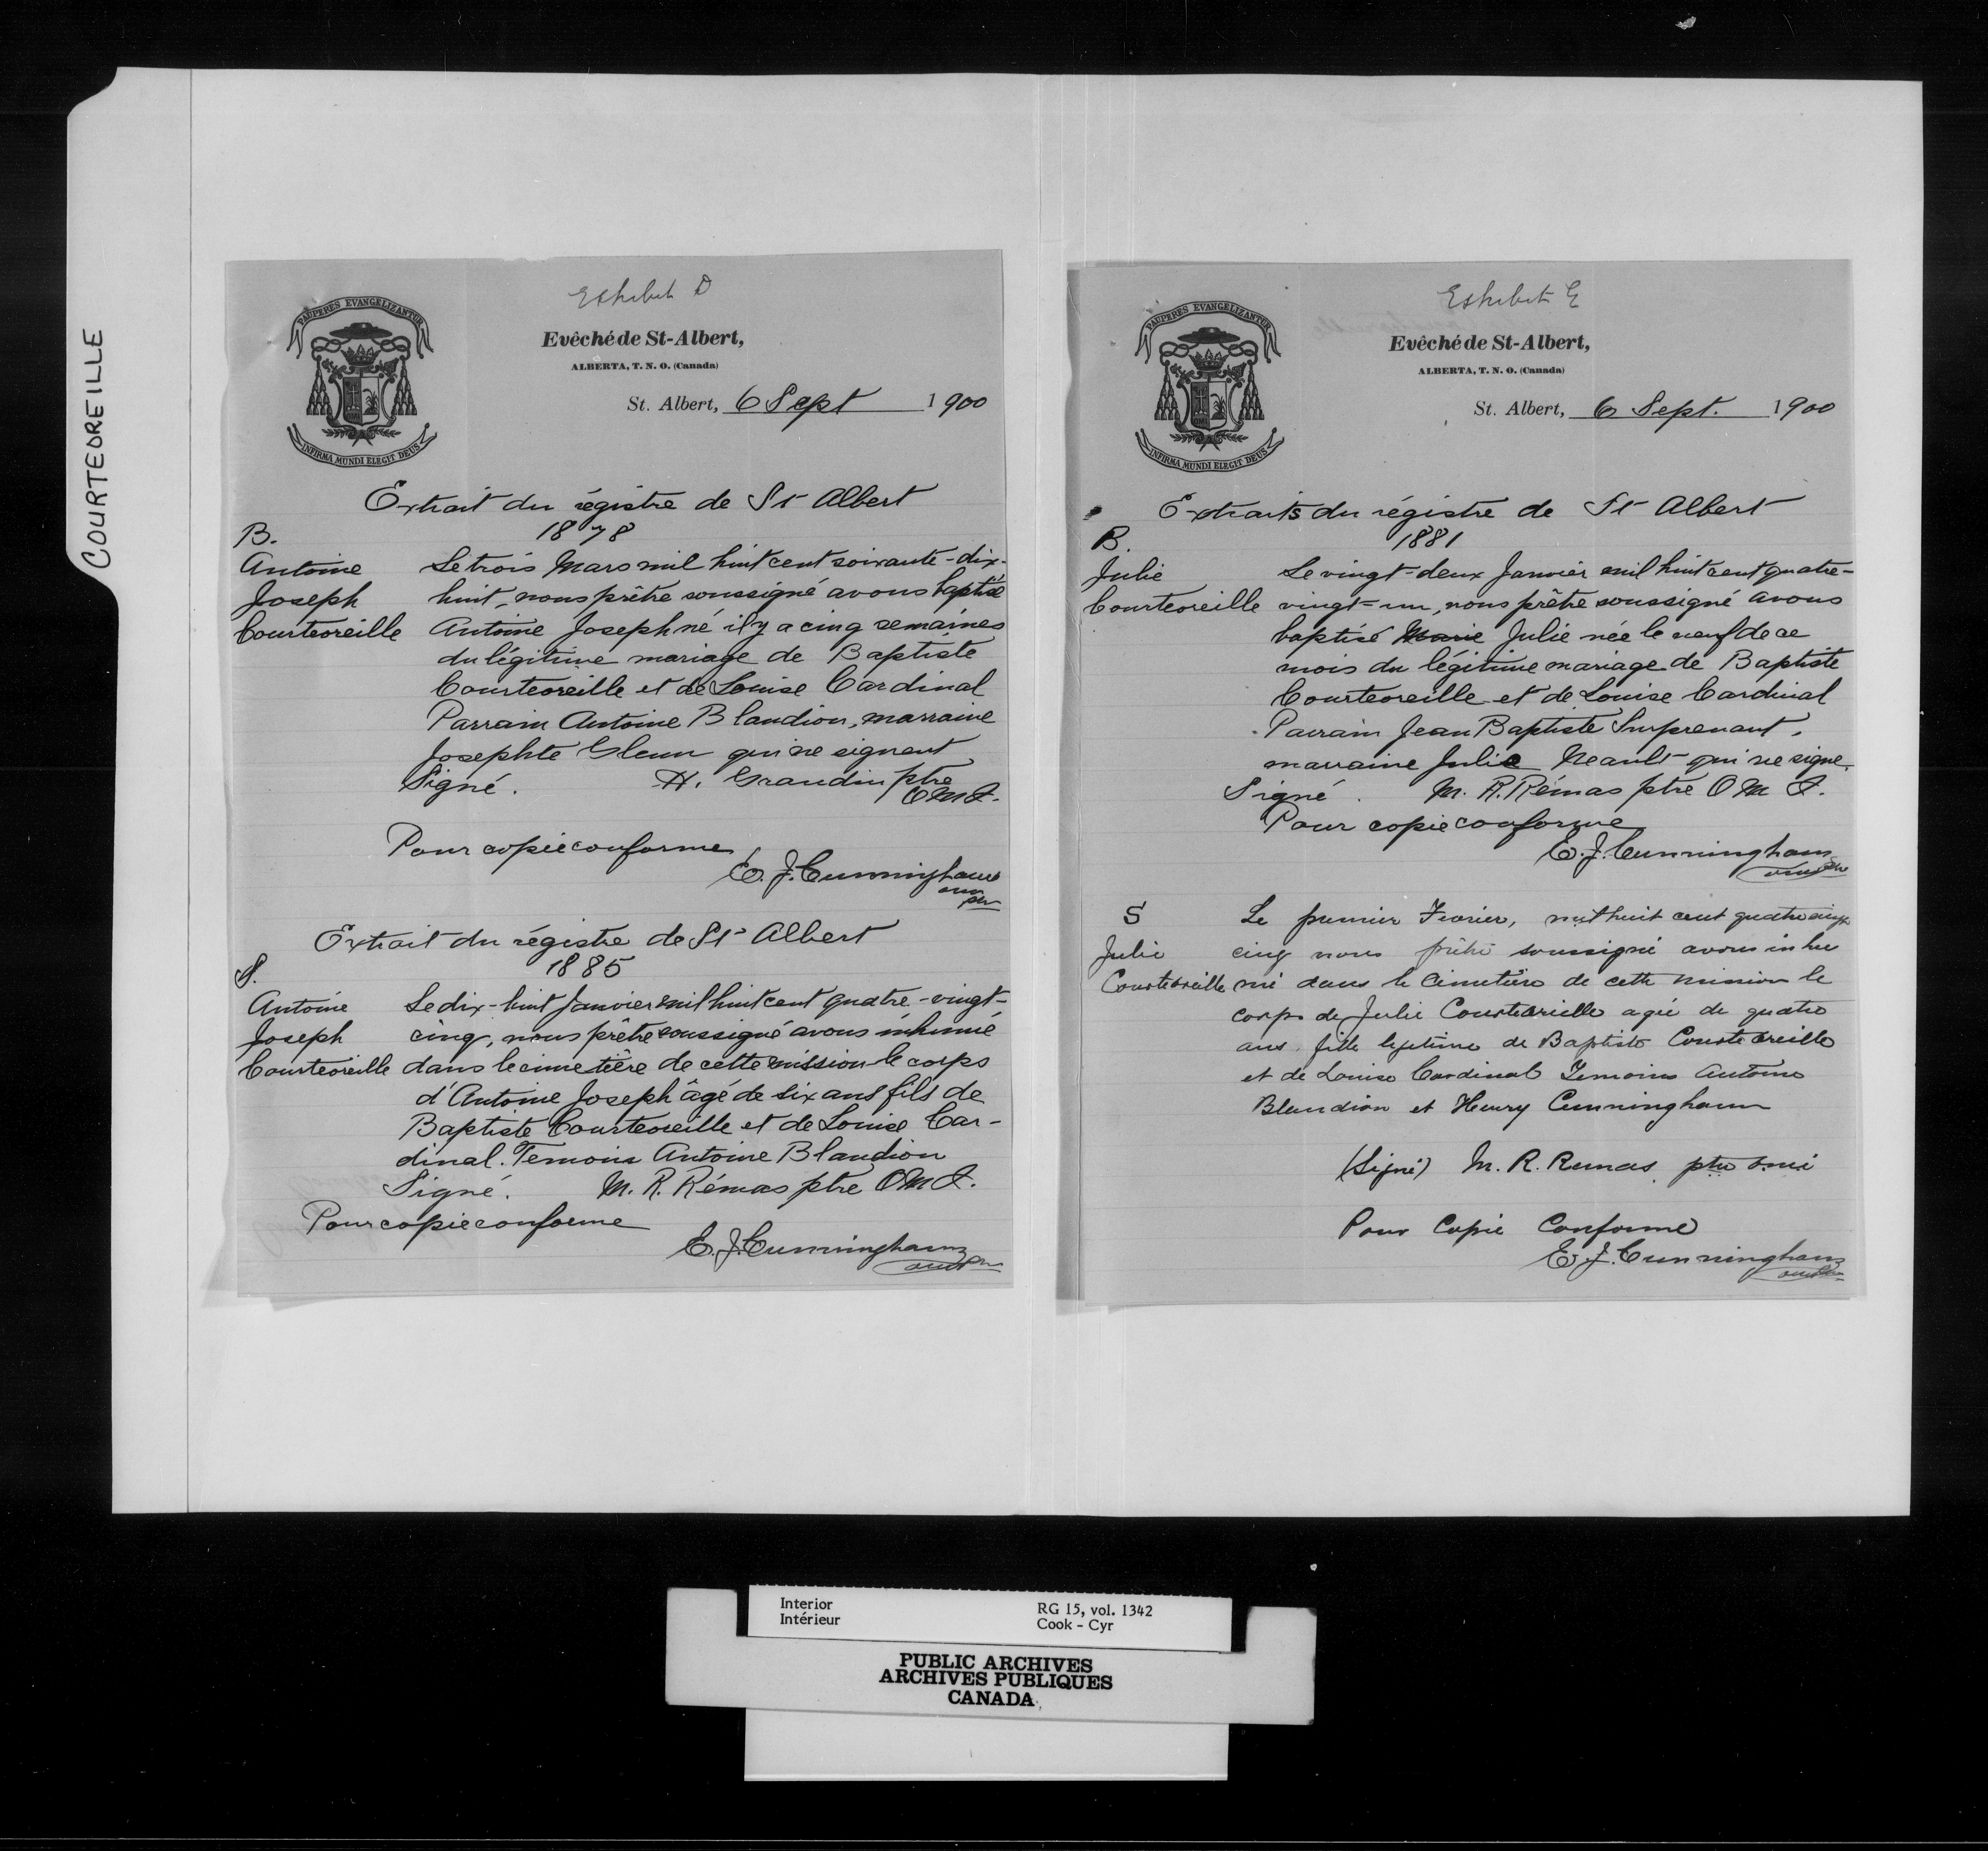 COURTEOREILLE
Exhibit D
PAUPERES EVANGELIZANTUR
Evêché de St-Albert,
ALBERTA, T. N. O. (Canada)
St. Albert, 6 Sept 1900
INFIRMA MUNDI ELEGIT DEUS
Extrait du régistre de St Albert
1878
B.
Antoine Le trois Mars mil huit cent soixante-dix-
Joseph huit, nous prêtre soussigné avons baptisé
Courteoreille Antoine Joseph né il y a cinq semaines
du légitime mariage de Baptiste
Courteoreille et de Louise Cardinal
Parrain Antoine Blandion, marraine
Josephte Glenn qui ne signent
Signé. H. Grandin ptre
O M I.
Pour copie conforme
E. J. Cunningham
omi
ptr
Extrait du régistre de St Albert
1885
S.
Antoine Le dix-huit Janvier mil huit cent quatre-vingt-
Joseph cinq, nous prêtre soussigné avons inhumé
Courteoreille dans le cimetière de cette mission le corps
d'Antoine Joseph âgé de six ans fils de
Baptiste Courteoreille et de Louise Car-
dinal. Temoin Antoine Blandion
Signé. M. R. Rémas ptre O M I.
Pour copie conforme
E. J. Cunningham
omi ptr
Exhibit E
PAUPERES EVANGELIZANTUR
Evêché de St-Albert,
ALBERTA, T. N. O. (Canada)
St. Albert, 6 Sept. 1900
INFIRMA MUNDI ELEGIT DEUS
Extraits du régistre de St Albert
1881
B.
Julie Le vingt-deux Janvier mil huit cent quatre-
Courteoreille vingt-un, nous prêtre soussigné avons
baptisé Marie Julie née le neuf de ce
mois du légitime mariage de Baptiste
Courteoreille et de Louise Cardinal
Parrain Jean Baptiste Surprenant,
marraine Julie Neault qui ne signe.
Signé. M. R. Rémas ptre O M I.
Pour copie conforme
E. J. Cunningham
omi ptr
S Le premier Fevrier, mil huit cent quatre vingt
Julie cinq nous prêtre soussigné avons inhu
Courteoreille mé dans le Cimetière de cette mission le
corps de Julie Courteoreille agée de quatre
ans fille legitime de Baptiste Courteoreille
et de Louise Cardinal Temoins Antoine
Blandion et Henry Cunningham
(Signé) M. R. Remas ptre omi
Pour Copie Conforme
E. J. Cunningham
omi ptr
Interior RG 15, vol. 1342
Intérieur Cook - Cyr
PUBLIC ARCHIVES
ARCHIVES PUBLIQUES
CANADA